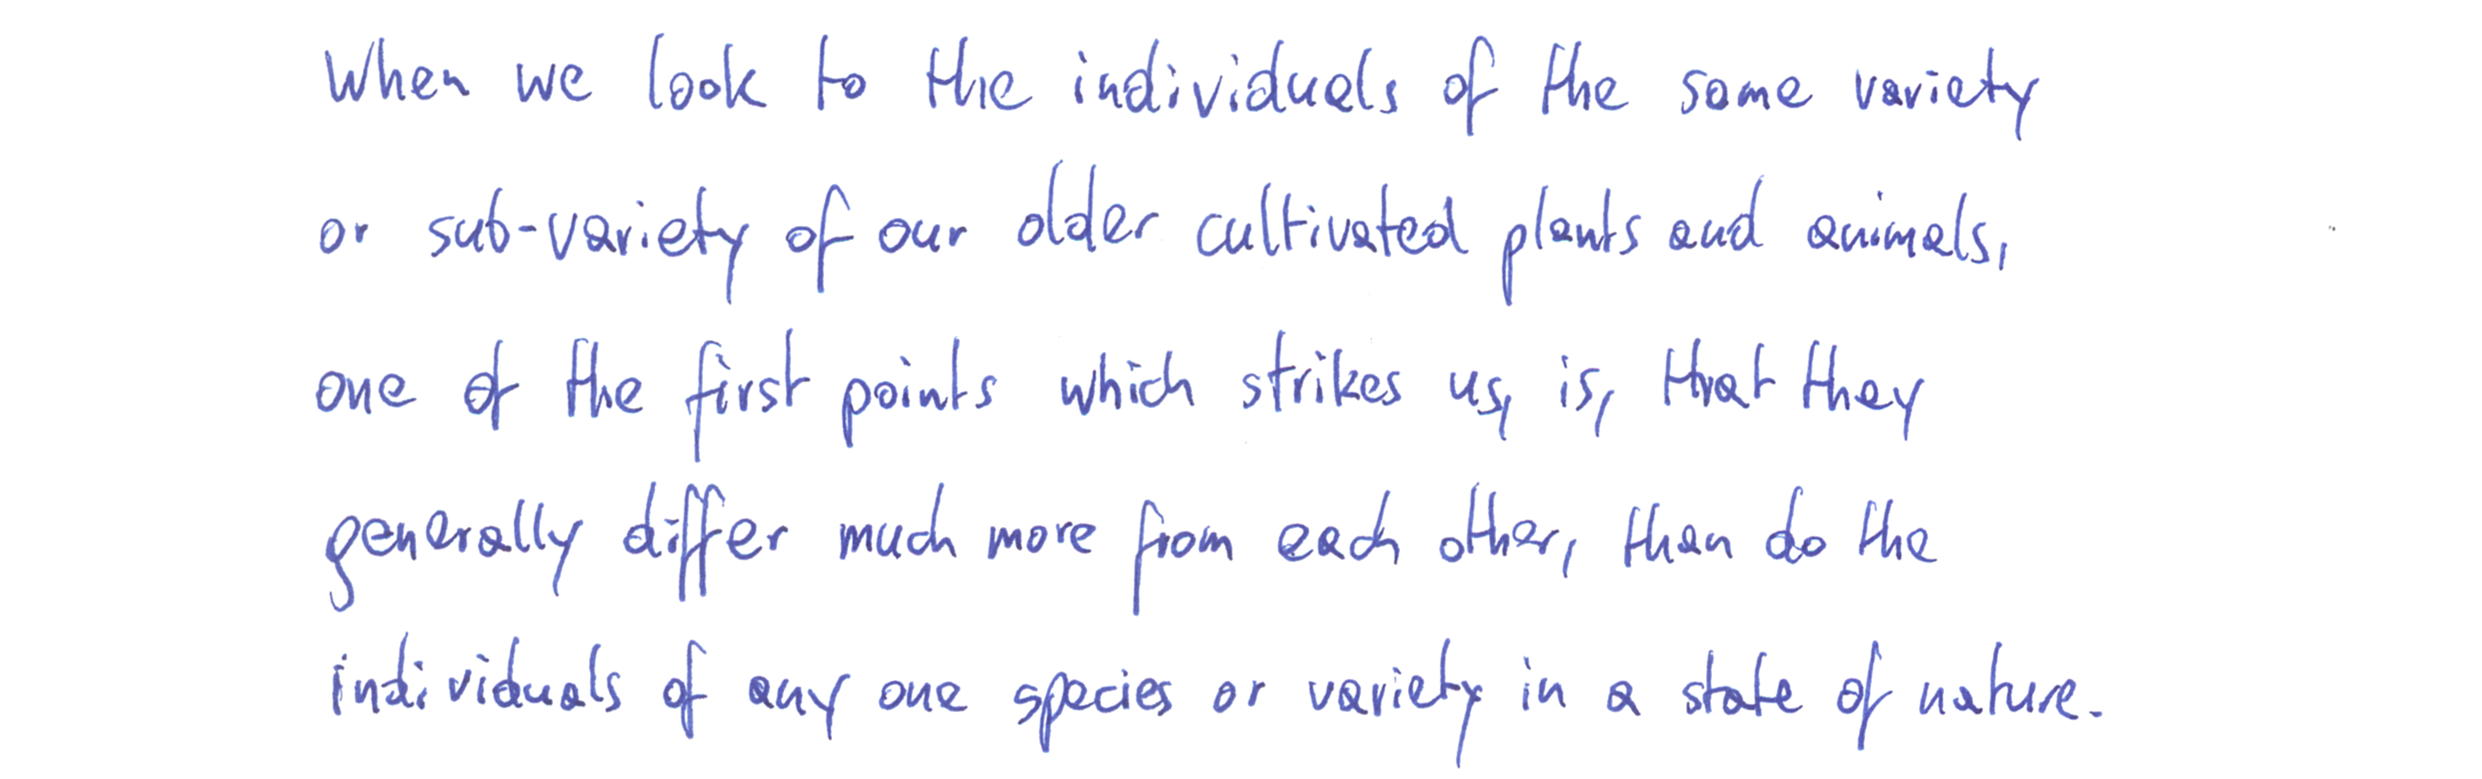 When we look to the individuals of the same variety
or sub-variety of our older cultivated plants and animals,
one of the first points which strikes us, is, that they
generally differ much more from each other, than do the
individuals of any one species or variety in a state of nature.